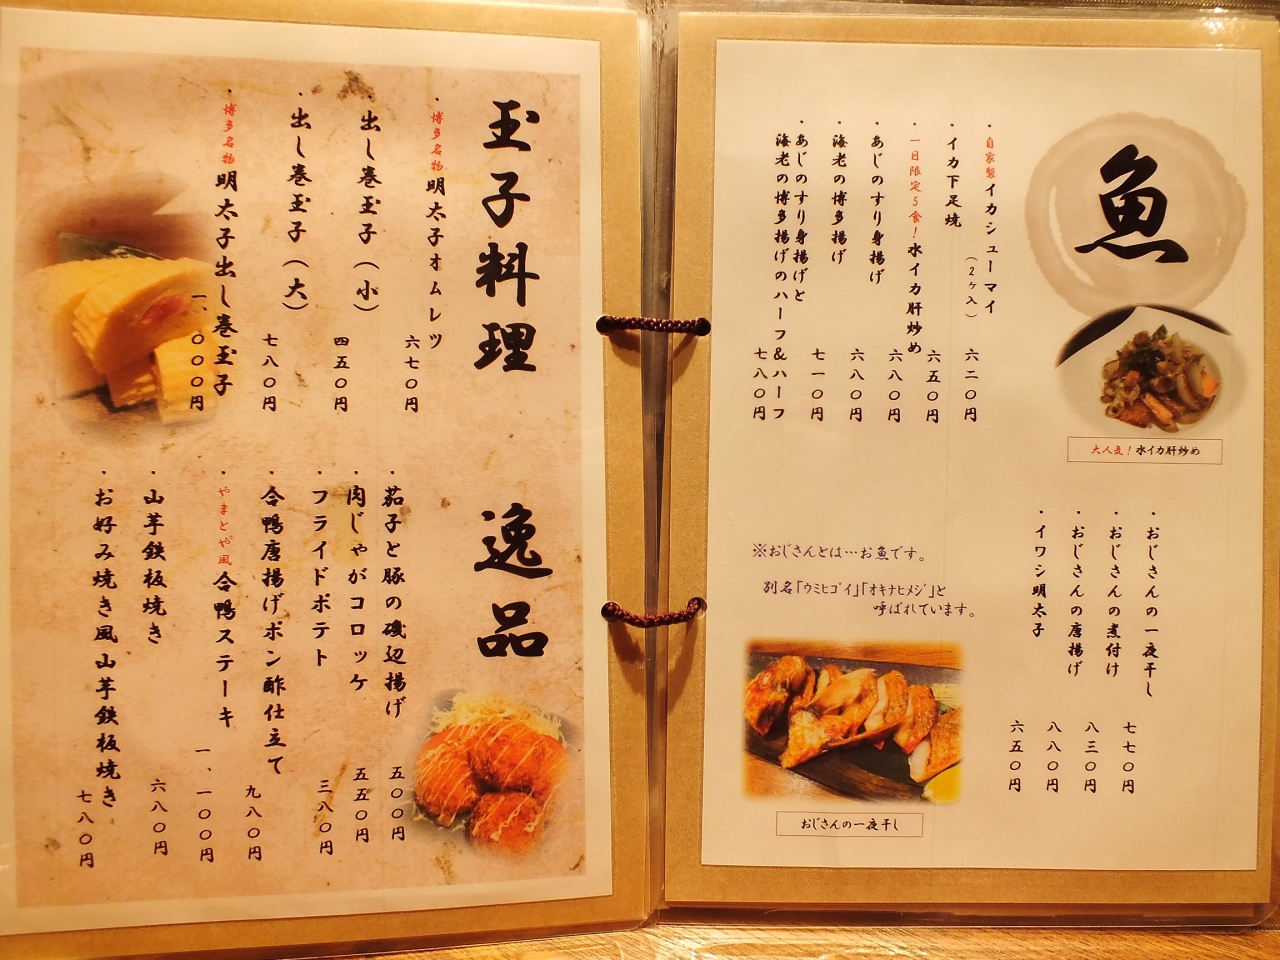 魚
・自家製イカシューマイ
（2ヶ入）
六二〇円
・イカ下足焼
六五〇円
・一日限定5食！水イカ肝炒め
六八〇円
・あじのすり身揚げ
六八〇円
・海老の博多揚げ
七一〇円
・あじのすり身揚げと
海老の博多揚げのハーフ&ハーフ
七八〇円
大人気！水イカ肝炒め
・おじさんの一夜干し
七七〇円
・おじさんの煮付け
八三〇円
・おじさんの唐揚げ
八八〇円
・イワシ明太子
六五〇円
※おじさんとは…お魚です。
別名「ウミヒゴイ」「オキナヒメジ」と
呼ばれています。
おじさんの一夜干し
玉子料理
・博多名物明太子オムレツ
六七〇円
・出し巻玉子（小）
四五〇円
・出し巻玉子（大）
七八〇円
・博多名物明太子出し巻玉子
一、〇〇〇円
逸品
・茄子と豚の磯辺揚げ
五〇〇円
・肉じゃがコロッケ
五五〇円
・フライドポテト
三八〇円
・合鴨唐揚げポン酢仕立て
九八〇円
・やまとや風合鴨ステーキ
一、一〇〇円
・山芋鉄板焼き
六八〇円
・お好み焼き風山芋鉄板焼き
七八〇円